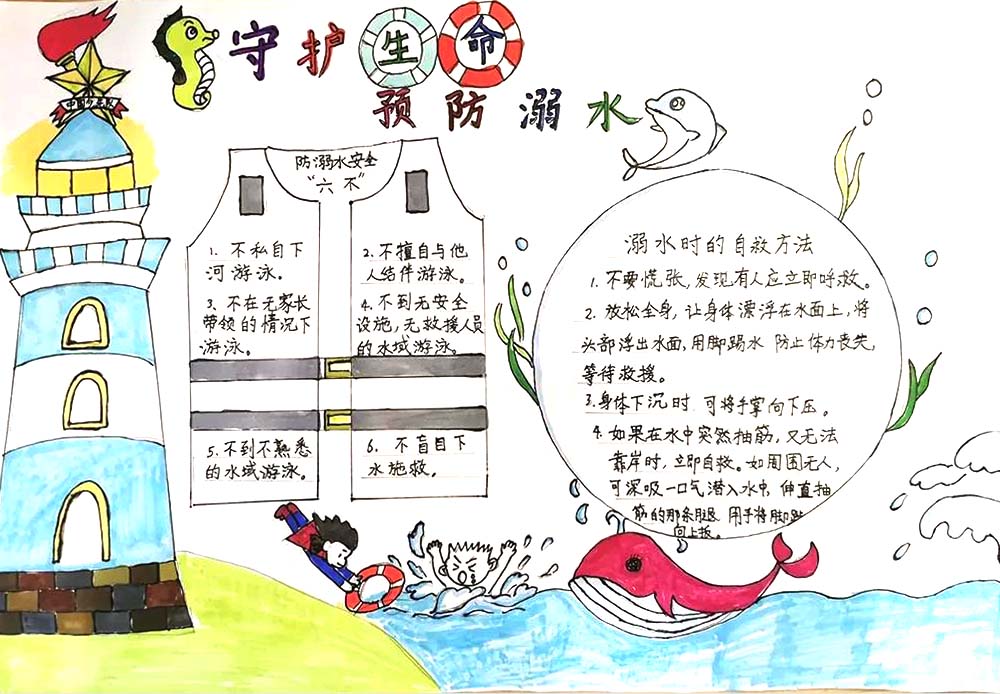 中国少年队
守护生命
预防溺水
防溺水安全
"六不"
1. 不私自下
河游泳。
2. 不擅自与他
人结伴游泳。
3. 不在无家长
带领的情况下
游泳。
4. 不到无安全
设施，无救援人员
的水域游泳。
5. 不到不熟悉
的水域游泳。
6. 不盲目下
水施救。
溺水时的自救方法
1. 不要慌张，发现有人应立即呼救。
2. 放松全身，让身体漂浮在水面上，将
头部浮出水面，用脚踢水 防止体力丧失，
等待救援。
3. 身体下沉时 可将手掌向下压。
4. 如果在水中突然抽筋，又无法
靠岸时，立即自救。如周围无人，
可深吸一口气潜入水中 伸直抽
筋的那条腿 用手将脚趾
向上扳。